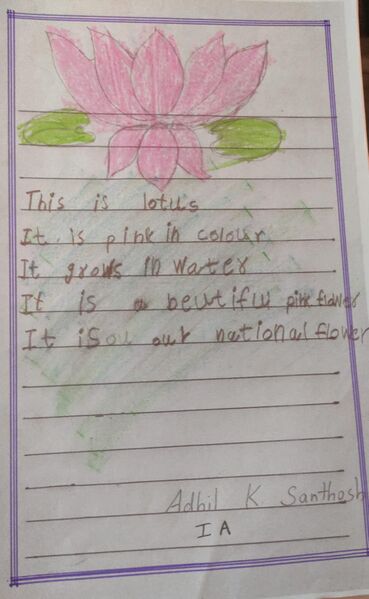 This is lotus
It is pink in colour
It grows in water
It is a beutiflu pink flawer
It is ou our national flower
Adhil K Santhosh
I A